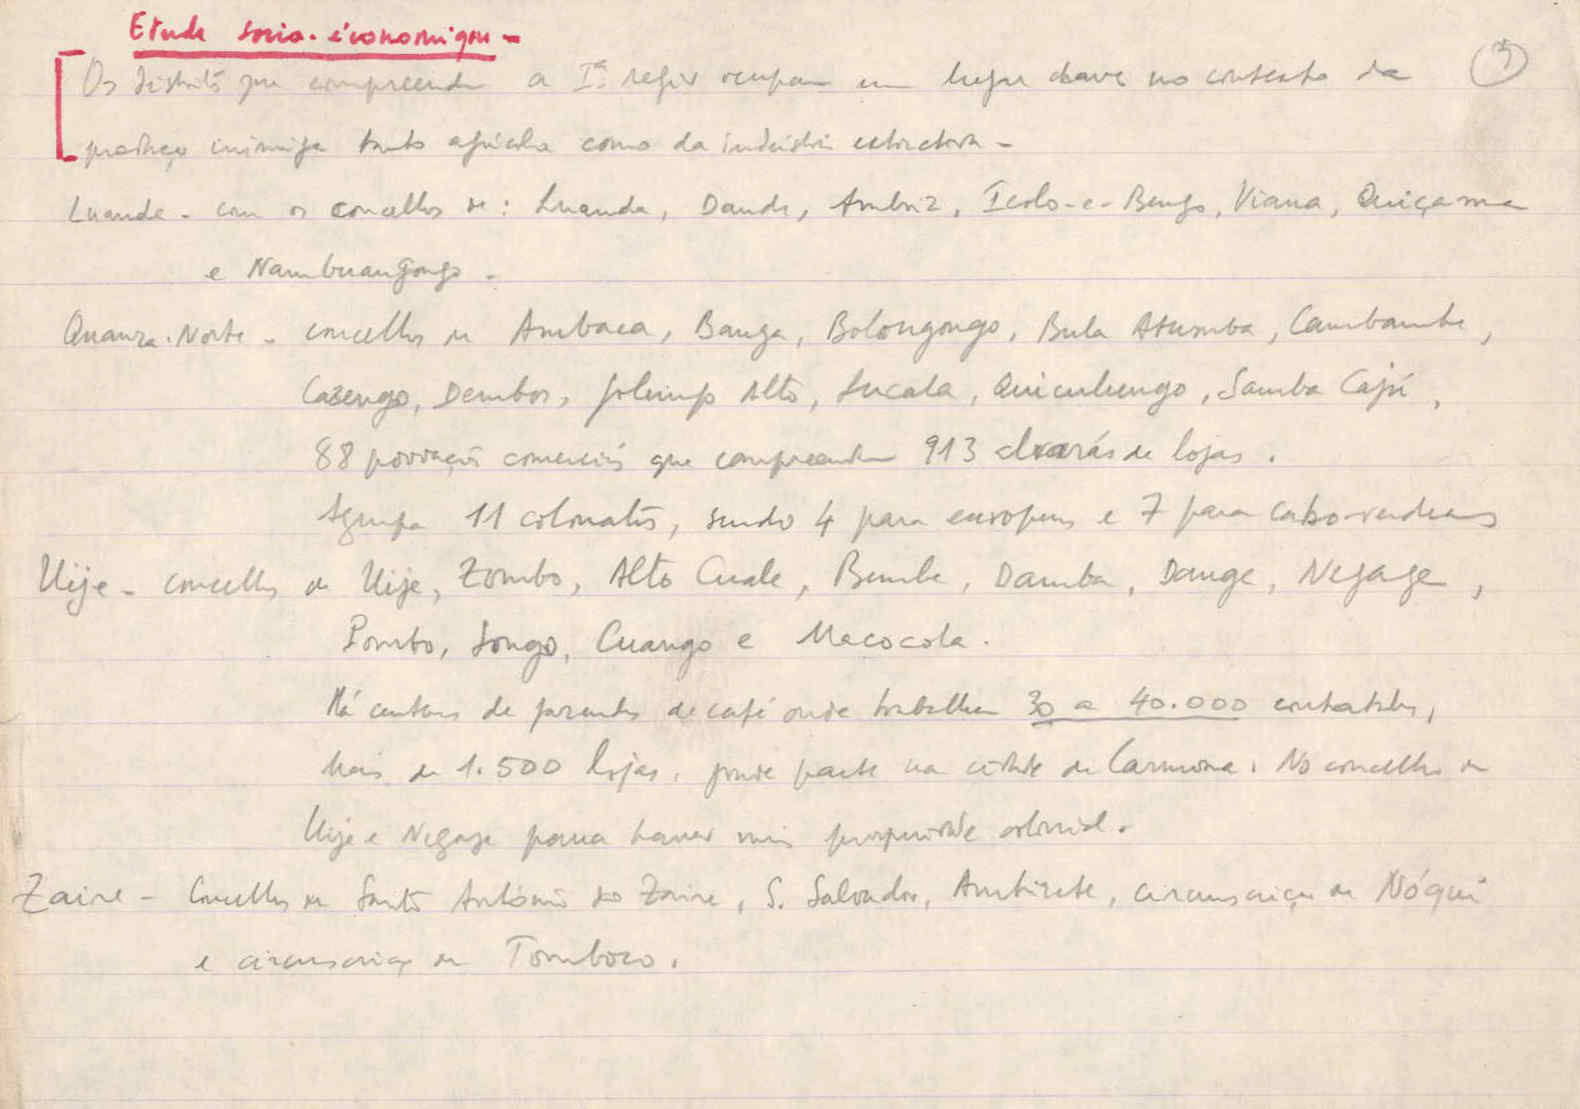 Etude socio-économique -
Os distritos que compreende a Iª região ocupam um lugar chave no contexto da
produção inimiga tanto agrícola como da indústria extractora -
Luanda - com os concelhos de: Luanda, Dande, Ambriz, Icolo-e-Bengo, Viana, Quiçama
e Nambuangongo -
Quanza-Norte - concelhos de Ambaca, Banga, Bolongongo, Bula Atumba, Cambambe,
Cazengo, Dembos, Golungo Alto, Lucala, Quiculungo, Samba Cajú,
88 povoações comerciais que compreendem 913 de lojas.
Agrupa 11 colonatos, sendo 4 para europeus e 7 para cabo-verdeanos
Uije - concelhos de Uije, Zombo, Alto Cuale, Bembe, Damba, Dange, Negage,
Pombo, Songo, Cuango e Macocola.
Há centenas de fazendas de café onde trabalham 30 a 40.000 contratados,
mais de 1.500 lojas, grande parte na cidade de Carmona. No concelho de
Uije e Negage haver mais propriedade colonial.
Zaire - Concelhos de Santo António do Zaire, S. Salvador, Ambrizete, circunscrição de Nóqui
e circunscrição de Tomboco.